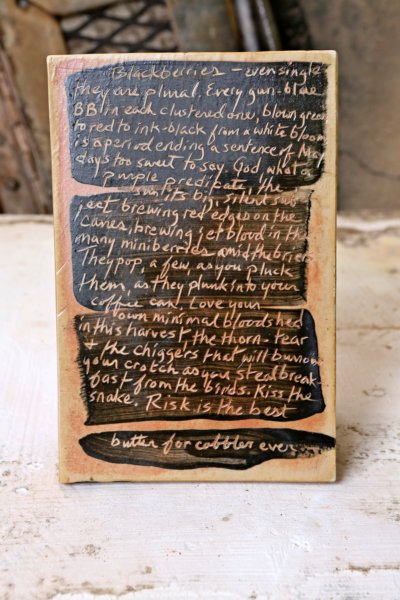 Blackberries – even single
they are plural. Every gun-blue
BB in each clustered one, blown green
to red to ink-black from a white bloom
is a period ending a sentence of May
days too sweet to say. God, what a
purple predicate, the
sun, its big, silent sub
ject brewing red edges on the
canes, brewing jet blood in the
many miniberries amid the briers
They pop, a few, as you pluck
them, as they plunk into your
coffee can. Love your
own minimal bloodshed
in this harvest the thorn-tear
+ the chiggers that will burrow in
your crotch as you steal break-
fast from the birds. Kiss the
snake. Risk is the best
butter for cobbler ever